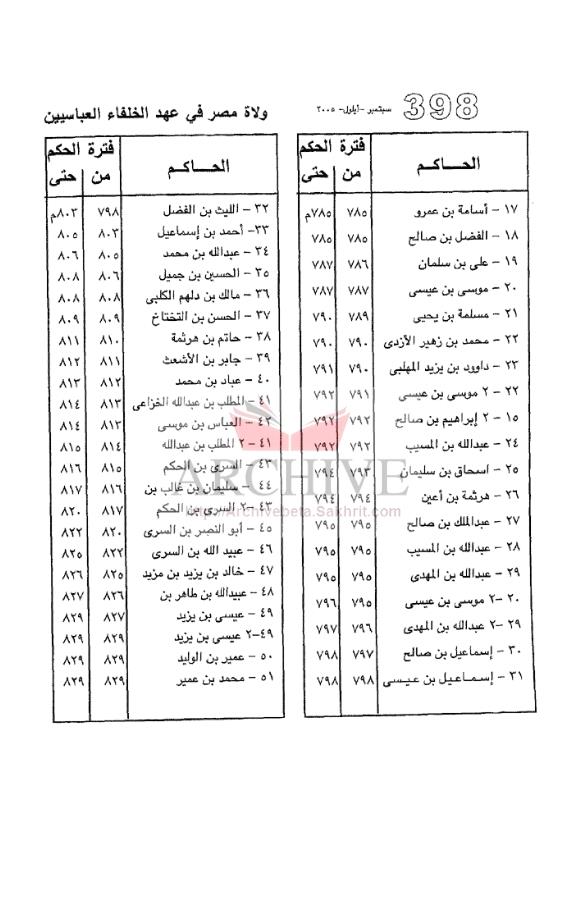 398 سبتمبر - أيلول - ٢٠٠٥
ولاة مصر في عهد الخلفاء العباسيين
الحـــاكـــم فترة الحكم
من حتى
١٧ - أسامة بن عمرو ٧٨٥ ٧٨٥م
١٨ - الفضل بن صالح ٧٨٥ ٧٨٥
١٩ - على بن سلمان ٧٨٦ ٧٨٧
٢٠ - موسى بن عيسى ٧٨٧ ٧٨٧
٢١ - مسلمة بن يحيى ٧٨٩ ٧٩٠
٢٢ - محمد بن زهير الأزدى ٧٩٠ ٧٩٠
٢٣ - داوود بن يزيد المهلبى ٧٩٠ ٧٩١
٢٢ - ٢ موسى بن عيسى ٧٩١ ٧٩٢
١٥ - ٢ إبراهيم بن صالح ٧٩٢ ٧٩٢
٢٤ - عبدالله بن المسيب ٧٩٢ ٧٩٢
٢٥ - اسحاق بن سليمان ٧٩٣ ٧٩٤
٢٦ - هرثمة بن أعين ٧٩٤ ٧٩٤
٢٧ - عبدالملك بن صالح ٧٩٥ ٧٩٥
٢٨ - عبدالله بن المسيب ٧٩٥ ٧٩٥
٢٩ - عبدالله بن المهدى ٧٩٥ ٧٩٥
٢٠ -٢ موسى بن عيسى ٧٩٥ ٧٩٦
٢٩ -٢ عبدالله بن المهدى ٧٩٦ ٧٩٧
٣٠ - إسماعيل بن صالح ٧٩٧ ٧٩٨
٣١ - إسـمـاعـيـل بن عـيـسى ٧٩٨ ٧٩٨
الحــاكـــم فترة الحكم
من حتى
٣٢ - الليث بن الفضل ٧٩٨ ٨٠٣م
٣٣- أحمد بن إسماعيل ٨٠٣ ٨٠٥
٣٤ - عبدالله بن محمد ٨٠٥ ٨٠٦
٣٥ - الحسين بن جميل ٨٠٦ ٨٠٨
٣٦ - مالك بن دلهم الكلبى ٨٠٨ ٨٠٨
٣٧ - الحسن بن التختاخ ٨٠٩ ٨٠٩
٣٨ - حاتم بن هرثمة ٨١٠ ٨١١
٣٩ - جابر بن الأشعث ٨١١ ٨١٢
٤٠ - عباد بن محمد ٨١٢ ٨١٣
٤١ - المطلب بن عبدالله الخزاعى ٨١٣ ٨١٤
٤٢ - العباس بن موسى ٨١٣ ٨١٤
٤١ -٢ المطلب بن عبدالله ٨١٤ ٨١٥
٤٣ - السرى بن الحكم ٨١٥ ٨١٦
٤٤ - سليمان بن غالب بن ٨١٦ ٨١٧
٤٣ -٢ السرى بن الحكم ٨١٧ ٨٢٠
٤٥ - أبو النصر بن السرى ٨٢٠ ٨٢٢
٤٦ - عبيد الله بن السرى ٨٢٢ ٨٢٥
٤٧ - خالد بن يزيد بن مزيد ٨٢٥ ٨٢٦
٤٨ - عبيدالله بن طاهر بن ٨٢٦ ٨٢٧
٤٩ - عيسى بن يزيد ٨٢٧ ٨٢٩
٤٩-٢ عيسى بن يزيد ٨٢٩ ٨٢٩
٥٠ - عمير بن الوليد ٨٢٩ ٨٢٩
٥١ - محمد بن عمير ٨٢٩ ٨٢٩
ARCHIVE
http://Archivebeta.Sakhrit.com